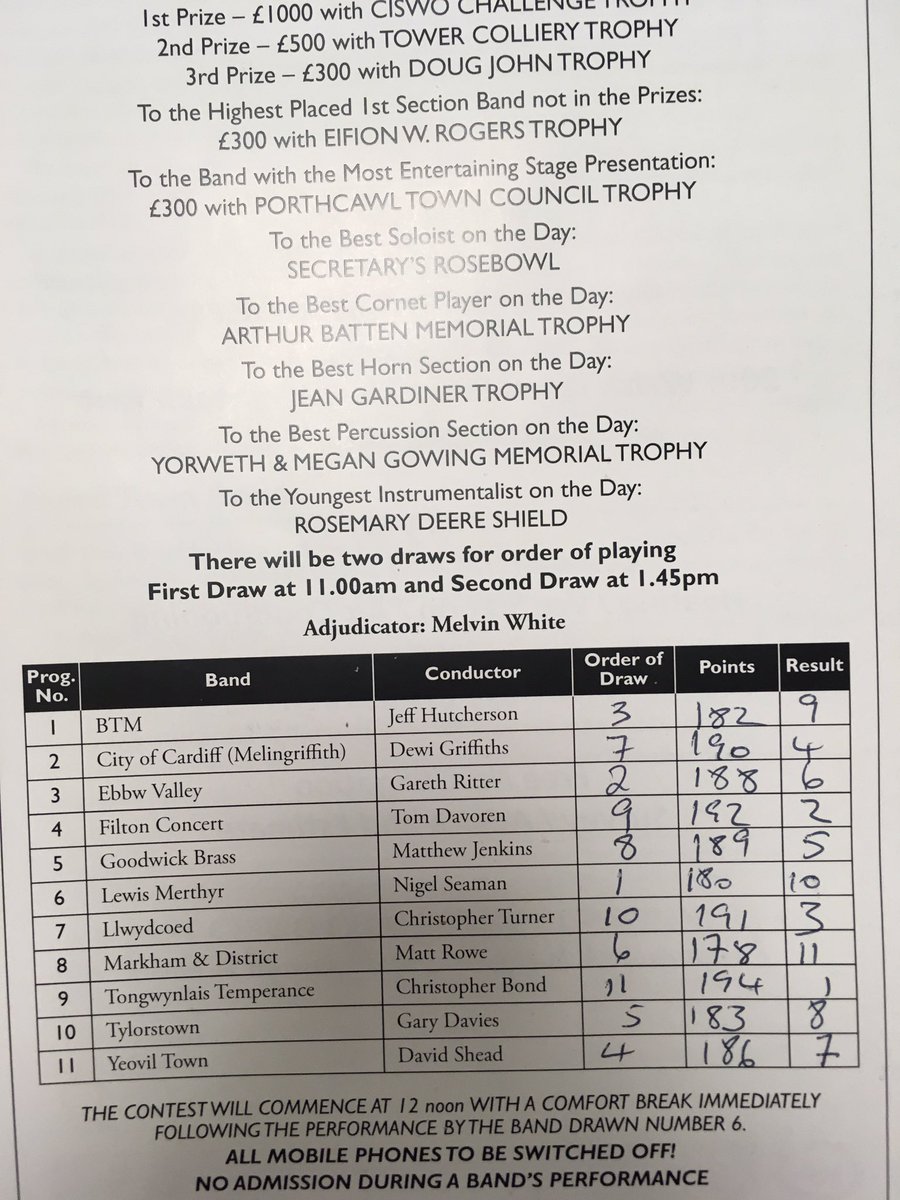 1st Prize – £1000 with CISWO CHALLENGE TROPHY
2nd Prize – £500 with TOWER COLLIERY TROPHY
3rd Prize – £300 with DOUG JOHN TROPHY
To the Highest Placed 1st Section Band not in the Prizes:
£300 with EIFION W. ROGERS TROPHY
To the Band with the Most Entertaining Stage Presentation:
£300 with PORTHCAWL TOWN COUNCIL TROPHY
To the Best Soloist on the Day:
SECRETARY'S ROSEBOWL
To the Best Cornet Player on the Day:
ARTHUR BATTEN MEMORIAL TROPHY
To the Best Horn Section on the Day:
JEAN GARDINER TROPHY
To the Best Percussion Section on the Day:
YORWETH & MEGAN GOWING MEMORIAL TROPHY
To the Youngest Instrumentalist on the Day:
ROSEMARY DEERE SHIELD
There will be two draws for order of playing
First Draw at 11.00am and Second Draw at 1.45pm
Adjudicator: Melvin White
Prog. No. Band Conductor Order of Draw Points Result
1 BTM Jeff Hutcherson 3 182 9
2 City of Cardiff (Melingriffith) Dewi Griffiths 7 190 4
3 Ebbw Valley Gareth Ritter 2 188 6
4 Filton Concert Tom Davoren 9 192 2
5 Goodwick Brass Matthew Jenkins 8 189 5
6 Lewis Merthyr Nigel Seaman 1 180 10
7 Llwydcoed Christopher Turner 10 191 3
8 Markham & District Matt Rowe 6 178 11
9 Tongwynlais Temperance Christopher Bond 11 194 1
10 Tylorstown Gary Davies 5 183 8
11 Yeovil Town David Shead 4 186 7
THE CONTEST WILL COMMENCE AT 12 noon WITH A COMFORT BREAK IMMEDIATELY
FOLLOWING THE PERFORMANCE BY THE BAND DRAWN NUMBER 6.
ALL MOBILE PHONES TO BE SWITCHED OFF!
NO ADMISSION DURING A BAND'S PERFORMANCE